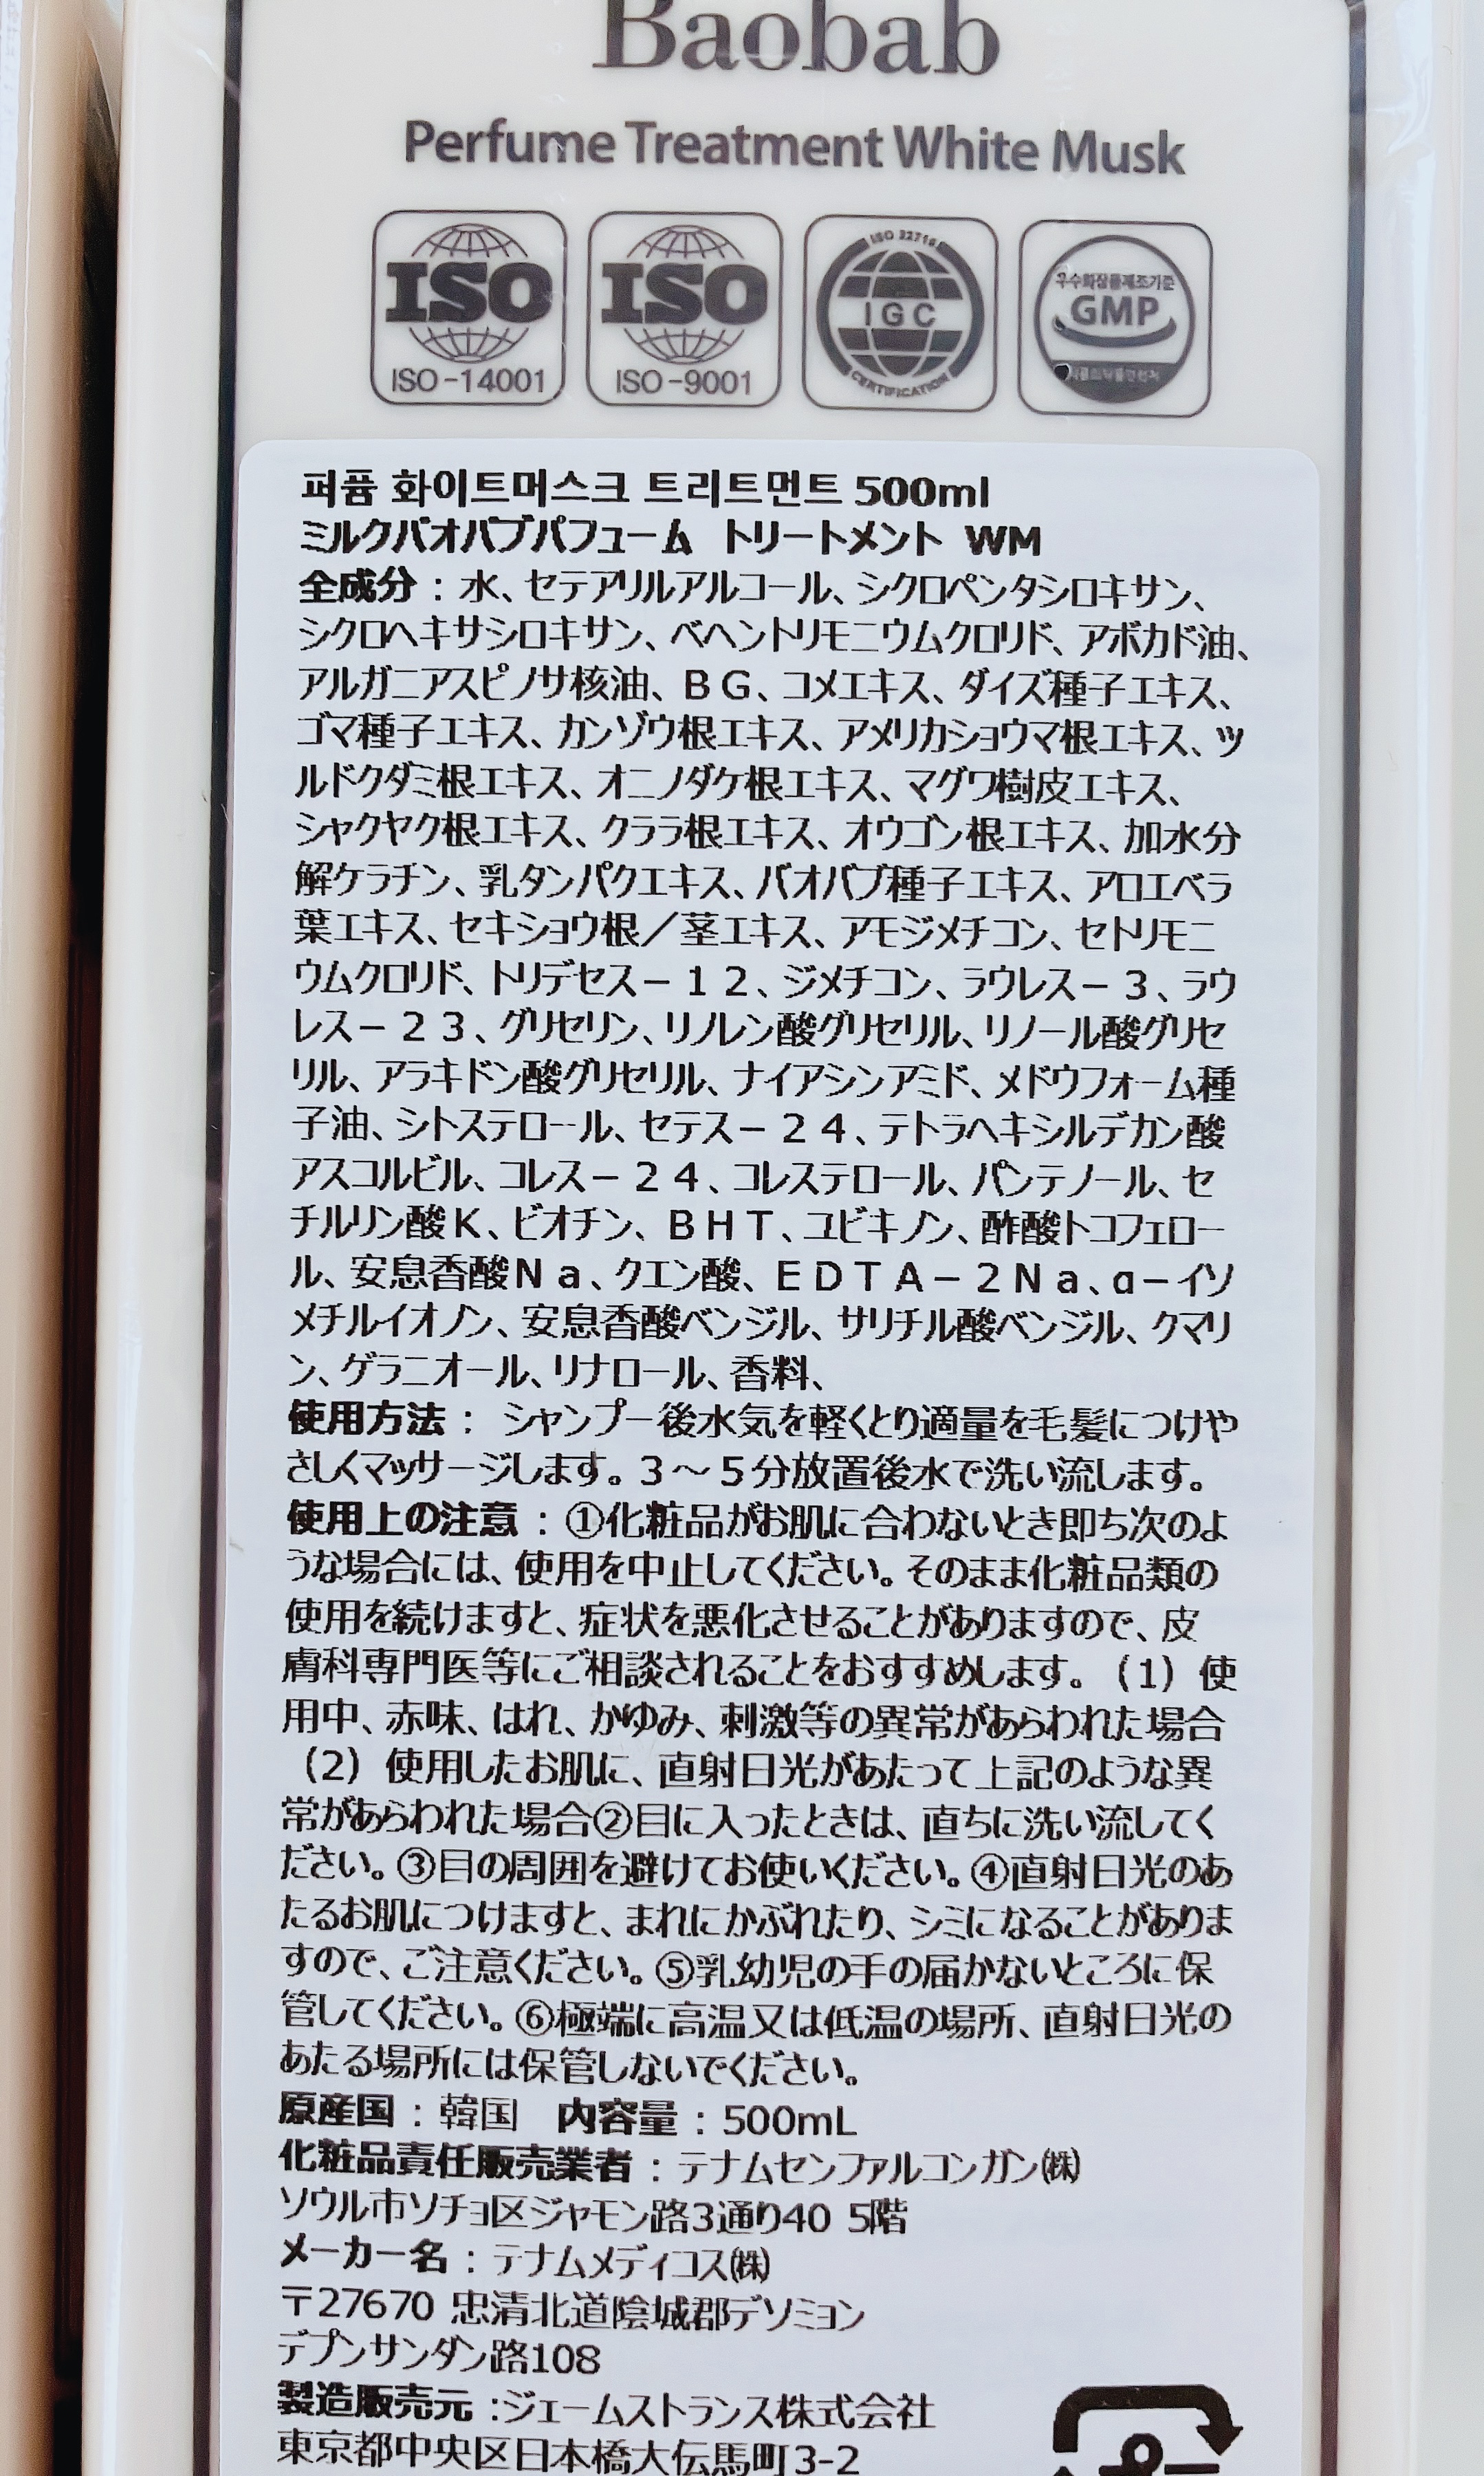 Baobab
Perfume Treatment White Musk
ISO
ISO-14001
ISO
ISO-9001
ISO 22716
IGC
CERTIFICATION
우수화장품제조기준
GMP
퍼퓸 화이트머스크 트리트먼트 500ml
ミルクバオバブパフューム トリートメント WM
全成分：水、セテアリルアルコール、シクロペンタシロキサン、
シクロヘキサシロキサン、ベヘントリモニウムクロリド、アボカド油、
アルガニアスピノサ核油、ＢＧ、コメエキス、ダイズ種子エキス、
ゴマ種子エキス、カンゾウ根エキス、アメリカショウマ根エキス、ツ
ルドクダミ根エキス、オニノダケ根エキス、マグワ樹皮エキス、
シャクヤク根エキス、クララ根エキス、オウゴン根エキス、加水分
解ケラチン、乳タンパクエキス、バオバブ種子エキス、アロエベラ
葉エキス、セキショウ根／茎エキス、アモジメチコン、セトリモニ
ウムクロリド、トリデセス－１２、ジメチコン、ラウレス－３、ラウ
レス－２３、グリセリン、リノレン酸グリセリル、リノール酸グリセ
リル、アラキドン酸グリセリル、ナイアシンアミド、メドウフォーム種
子油、シトステロール、セテス－２４、テトラヘキシルデカン酸
アスコルビル、コレス－２４、コレステロール、パンテノール、セ
チルリン酸Ｋ、ビオチン、ＢＨＴ、ユビキノン、酢酸トコフェロー
ル、安息香酸Ｎａ、クエン酸、ＥＤＴＡ－２Ｎａ、α－イソ
メチルイオノン、安息香酸ベンジル、サリチル酸ベンジル、クマリ
ン、ゲラニオール、リナロール、香料、
使用方法： シャンプー後水気を軽くとり適量を毛髪につけや
さしくマッサージします。３～５分放置後水で洗い流します。
使用上の注意：①化粧品がお肌に合わないとき即ち次のよ
うな場合には、使用を中止してください。そのまま化粧品類の
使用を続けますと、症状を悪化させることがありますので、皮
膚科専門医等にご相談されることをおすすめします。（1）使
用中、赤味、はれ、かゆみ、刺激等の異常があらわれた場合
（2）使用したお肌に、直射日光があたって上記のような異
常があらわれた場合②目に入ったときは、直ちに洗い流してく
ださい。③目の周囲を避けてお使いください。④直射日光のあ
たるお肌につけますと、まれにかぶれたり、シミになることがありま
すので、ご注意ください。⑤乳幼児の手の届かないところに保
管してください。⑥極端に高温又は低温の場所、直射日光の
あたる場所には保管しないでください。
原産国：韓国 内容量：500mL
化粧品責任販売業者：テナムセンファルコンガン㈱
ソウル市ソチョ区ジャモン路3通り40 5階
メーカー名：テナムメディコス㈱
〒27670 忠清北道陰城郡デソミョン
デプンサンダン路108
製造販売元：ジェームストランス株式会社
東京都中央区日本橋大伝馬町3-2